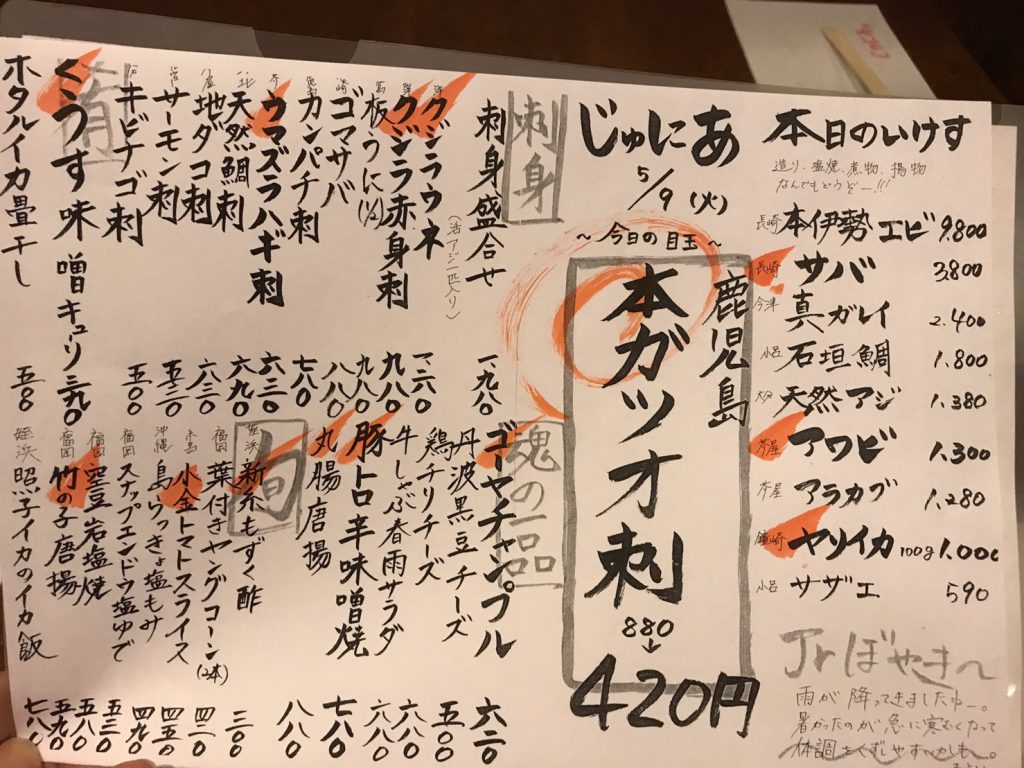 本日のいけす
造り、塩焼、煮物、揚物
なんでもどうぞー!!!
長崎 本伊勢エビ 9.800
長崎 サバ 3.800
今津 真ガレイ 2.400
小呂 石垣鯛 1.800
大分 天然アジ 1.380
芥屋 アワビ 1.300
芥屋 アラカブ 1.280
鐘崎 ヤリイカ 100g 1.000
小呂 サザエ 590
Jrぼやき〜
雨が降ってきましたねー。
暑かったのが急に寒むくなって
体調をくずしやすいかも。
じゅにあ
5/9(火)
〜今日の目玉〜
鹿児島
本ガツオ刺
880
↓
420円
刺身
刺身盛合せ 一.九八〇
(活アジ一匹入り)
クジラウネ 一.二六〇
クジラ赤身刺 九八〇
板うに 九八〇
ゴマサバ 八八〇
カンパチ刺 七八〇
ウマズラハギ刺 六三〇
天然鯛刺 六九〇
地ダコ刺 六三〇
サーモン刺 五三〇
キビナゴ刺 五〇〇
肴
くうす味噌キュリ 三九〇
ホタルイカ畳干し 五〇〇
魂の一品
ゴーヤチャンプル 六二〇
丹波黒豆チーズ 五〇〇
鶏チリチーズ 六八〇
牛しゃぶ春雨サラダ 六八〇
豚トロ辛味噌焼 七八〇
丸腸唐揚 八八〇
旬
姪浜 新糸もずく酢 三〇〇
福岡 葉付きヤングコーン(2本) 四一〇
小金トマトスライス 四五〇
沖縄 島らっきょ塩もみ 四九〇
福岡 スナップエンドウ塩ゆで 五三〇
福岡 空豆岩塩焼 五八〇
福岡 竹の子唐揚 五九〇
姪浜 照子イカのイカ飯 七八〇